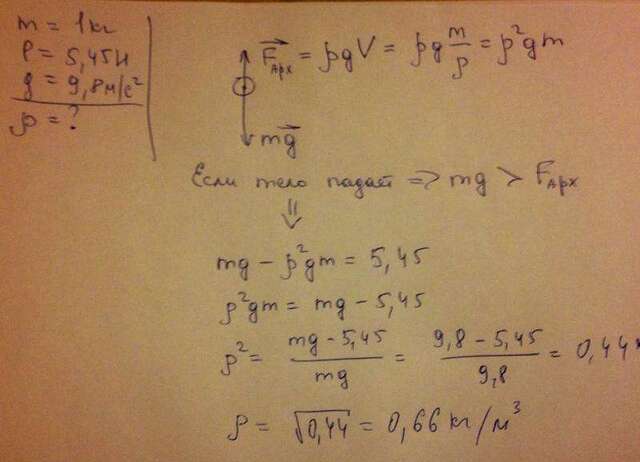 m = 1кг
P = 5,45H
g = 9,8м/с²
ρ = ?
F⃗Арх = ρgV = ρg m/ρ = ρ²gm
mg⃗
Если тело падает => mg > FАрх
⇓
mg - ρ²gm = 5,45
ρ²gm = mg - 5,45
ρ² = (mg - 5,45)/mg = (9,8 - 5,45)/9,8 = 0,44
ρ = √0,44 = 0,66 кг/м³